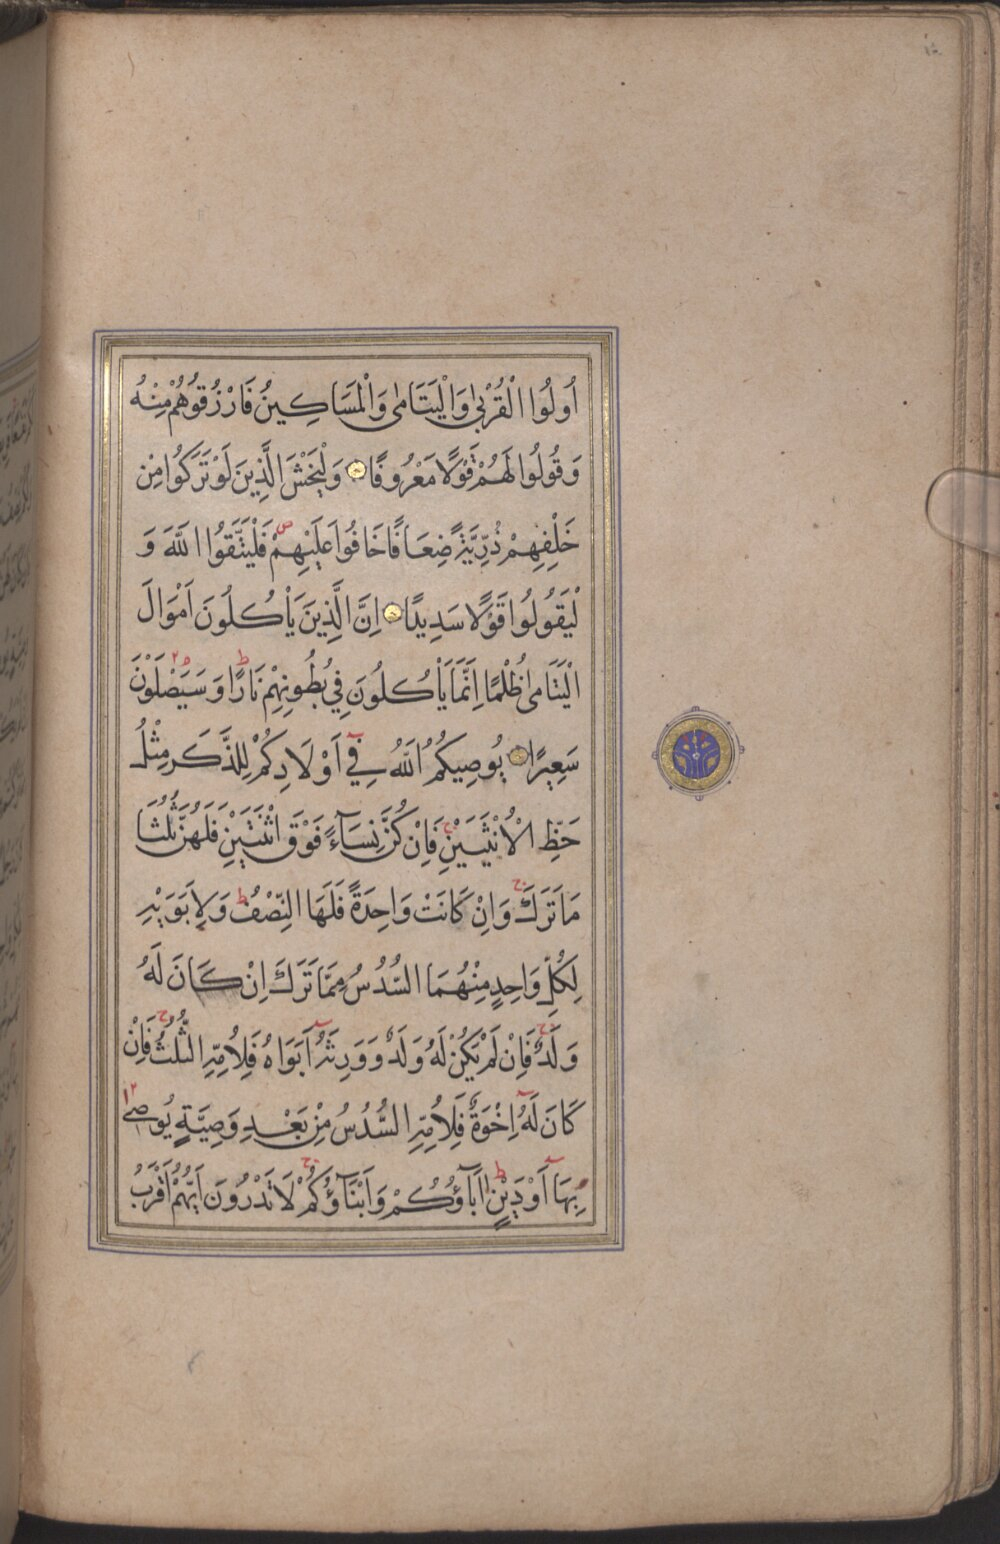 اُولُوا الْقُرْبٰى وَالْيَتَامٰى وَالْمَسَاكِينُ فَارْزُقُوهُمْ مِنْهُ
وَقُولُوا لَهُمْ قَوْلًا مَعْرُوفًا وَلْيَخْشَ الَّذِينَ لَوْ تَرَكُوا مِنْ
خَلْفِهِمْ ذُرِّيَّةً ضِعَافًا خَافُوا عَلَيْهِمْ فَلْيَتَّقُوا اللّٰهَ وَ
لْيَقُولُوا قَوْلًا سَدِيدًا اِنَّ الَّذِينَ يَاْكُلُونَ اَمْوَالَ
الْيَتَامٰى ظُلْمًا اِنَّمَا يَاْكُلُونَ فِي بُطُونِهِمْ نَارًا وَسَيَصْلَوْنَ
سَعِيرًا يُوصِيكُمُ اللّٰهُ فِي اَوْلَادِكُمْ لِلذَّكَرِ مِثْلُ
حَظِّ الْاُنْثَيَيْنِ فَاِنْ كُنَّ نِسَاءً فَوْقَ اثْنَتَيْنِ فَلَهُنَّ ثُلُثَا
مَا تَرَكَ وَاِنْ كَانَتْ وَاحِدَةً فَلَهَا النِّصْفُ وَلِاَبَوَيْهِ
لِكُلِّ وَاحِدٍ مِنْهُمَا السُّدُسُ مِمَّا تَرَكَ اِنْ كَانَ لَهُ
وَلَدٌ فَاِنْ لَمْ يَكُنْ لَهُ وَلَدٌ وَوَرِثَهُ اَبَوَاهُ فَلِاُمِّهِ الثُّلُثُ فَاِنْ
كَانَ لَهُ اِخْوَةٌ فَلِاُمِّهِ السُّدُسُ مِنْ بَعْدِ وَصِيَّةٍ يُوصِي
بِهَا اَوْ دَيْنٍ اٰبَاؤُكُمْ وَاَبْنَاؤُكُمْ لَا تَدْرُونَ اَيُّهُمْ اَقْرَبُ